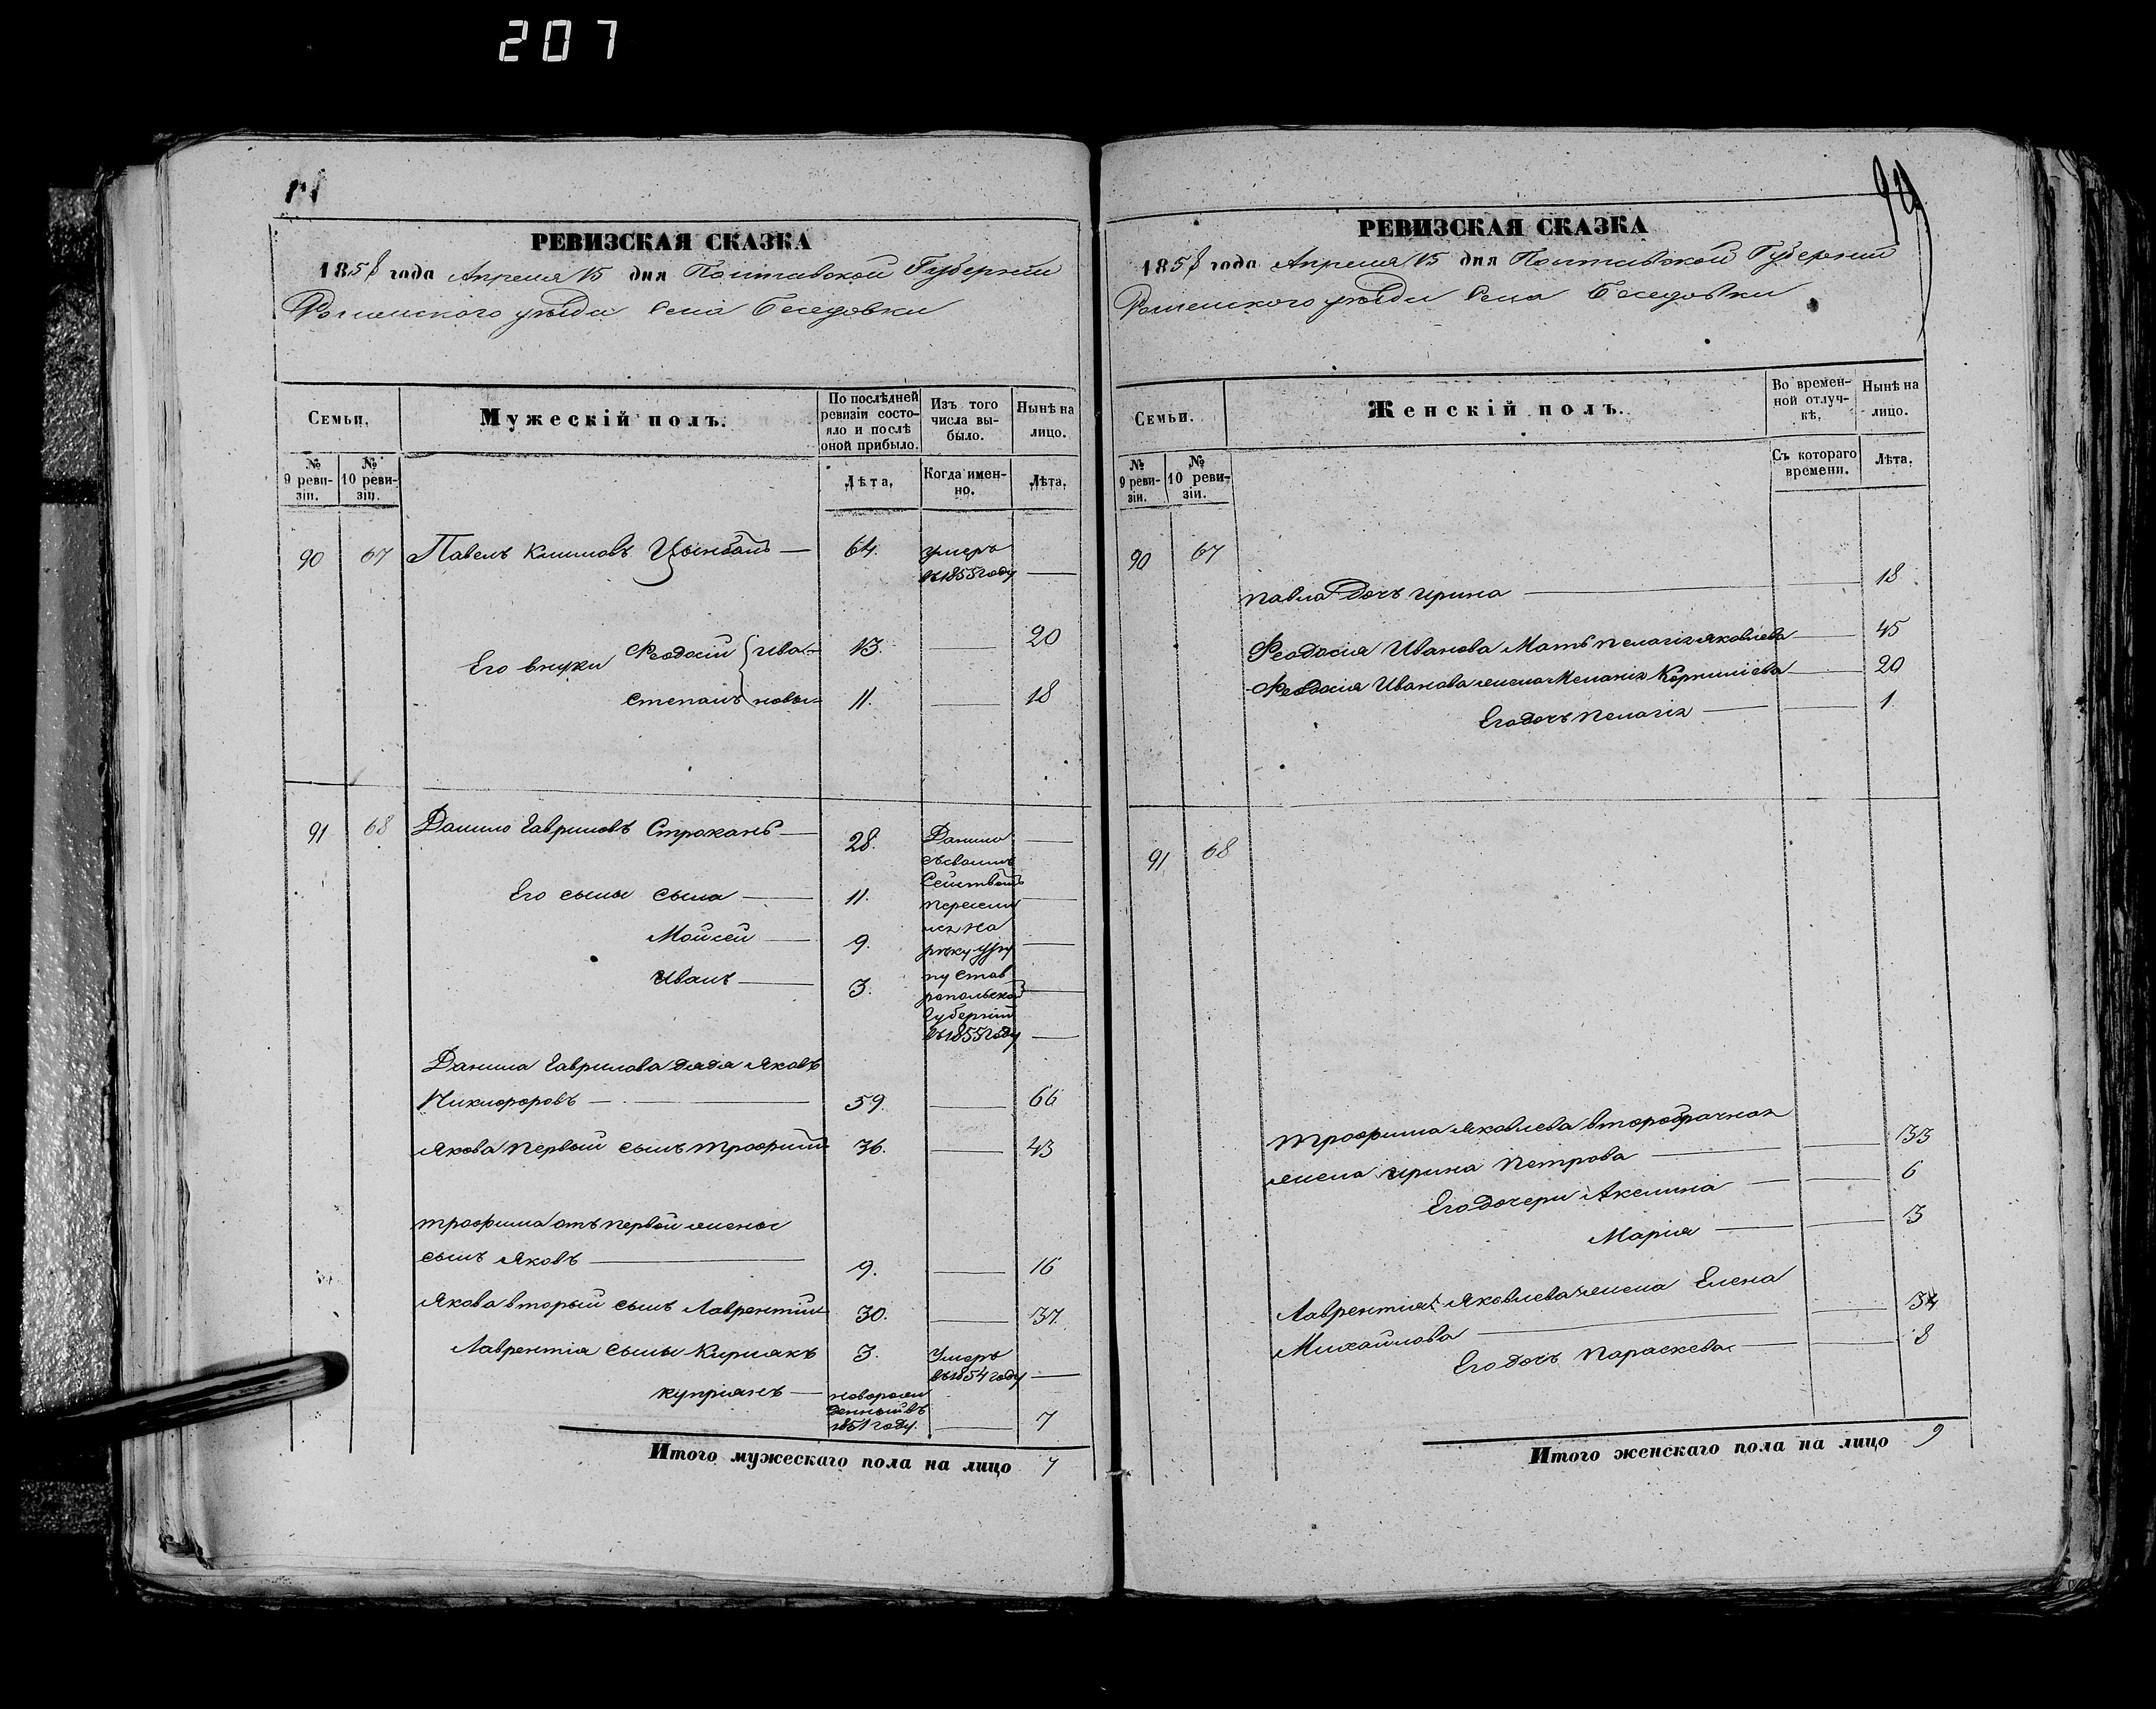 207
РЕВИЗСКАЯ СКАЗКА
1858 года Апреля 15 дня Полтавской Губерніи
Роменского уезда Села Беседовки
Семьи.
Мужескій полъ.
По послѣдней ревизіи состояло и послѣ оной прибыло.
Изъ того числа выбыло.
Нынѣ на лицо.
№ 9 ревизіи.
№ 10 ревизіи.
Лѣта.
Когда именно.
Лѣта.
90 67 Павелъ Климовъ Цымбалъ — 64. умеръ
въ 1855 году —
Его внуки Феодосій } Ива- 13. — 20
Степанъ } новы 11. — 18
91 68 Данило Гавриловъ Строканъ — 28. Данило —
съ своимъ
Его сыны Сыла — 11. Семтвомъ
пересели —
Мойсей — 9. лся на
рѣку —
Иванъ — 3. Став
ропольской —
Губерніи
въ 1855 году —
Данила Гаврилова дядя Яковъ
Никифоровъ — 59. — 66
Якова первый сынъ Трофимъ 36. — 43
Трофима отъ первой жены
сынъ Яковъ — 9. — 16
Якова вторый сынъ Лаврентій 30. — 37.
Лаврентія сыны Кирьякъ 3. Умеръ
въ 1854 году —
Куприянъ — новорож
денный въ
1851 году. — 7
Итого мужескаго пола на лицо 7
РЕВИЗСКАЯ СКАЗКА
1858 года Апреля 15 дня Полтавской Губерніи
Роменского уезда Села Беседовки
Семьи.
Женскій полъ.
Во временной отлучкѣ.
Нынѣ на лицо.
№ 9 ревизіи.
№ 10 ревизіи.
Съ котораго времени.
Лѣта.
90 67
Павла Дочь Ирина — 18
Феодосія Иванова Мать Пелагія Яковлева — 45
Феодосія Иванова жена Меланія Корниліева — 20
Его дочь Пелагія — 1.
91 68
Трофима Яковлева второбрачная
жена Ирина Петрова — 33
Его дочери Акелина — 6
Марія — 3
Лаврентія Яковлева жена Елена
Михайлова — 34
Его дочь Параскева — 8
Итого женскаго пола на лицо 9